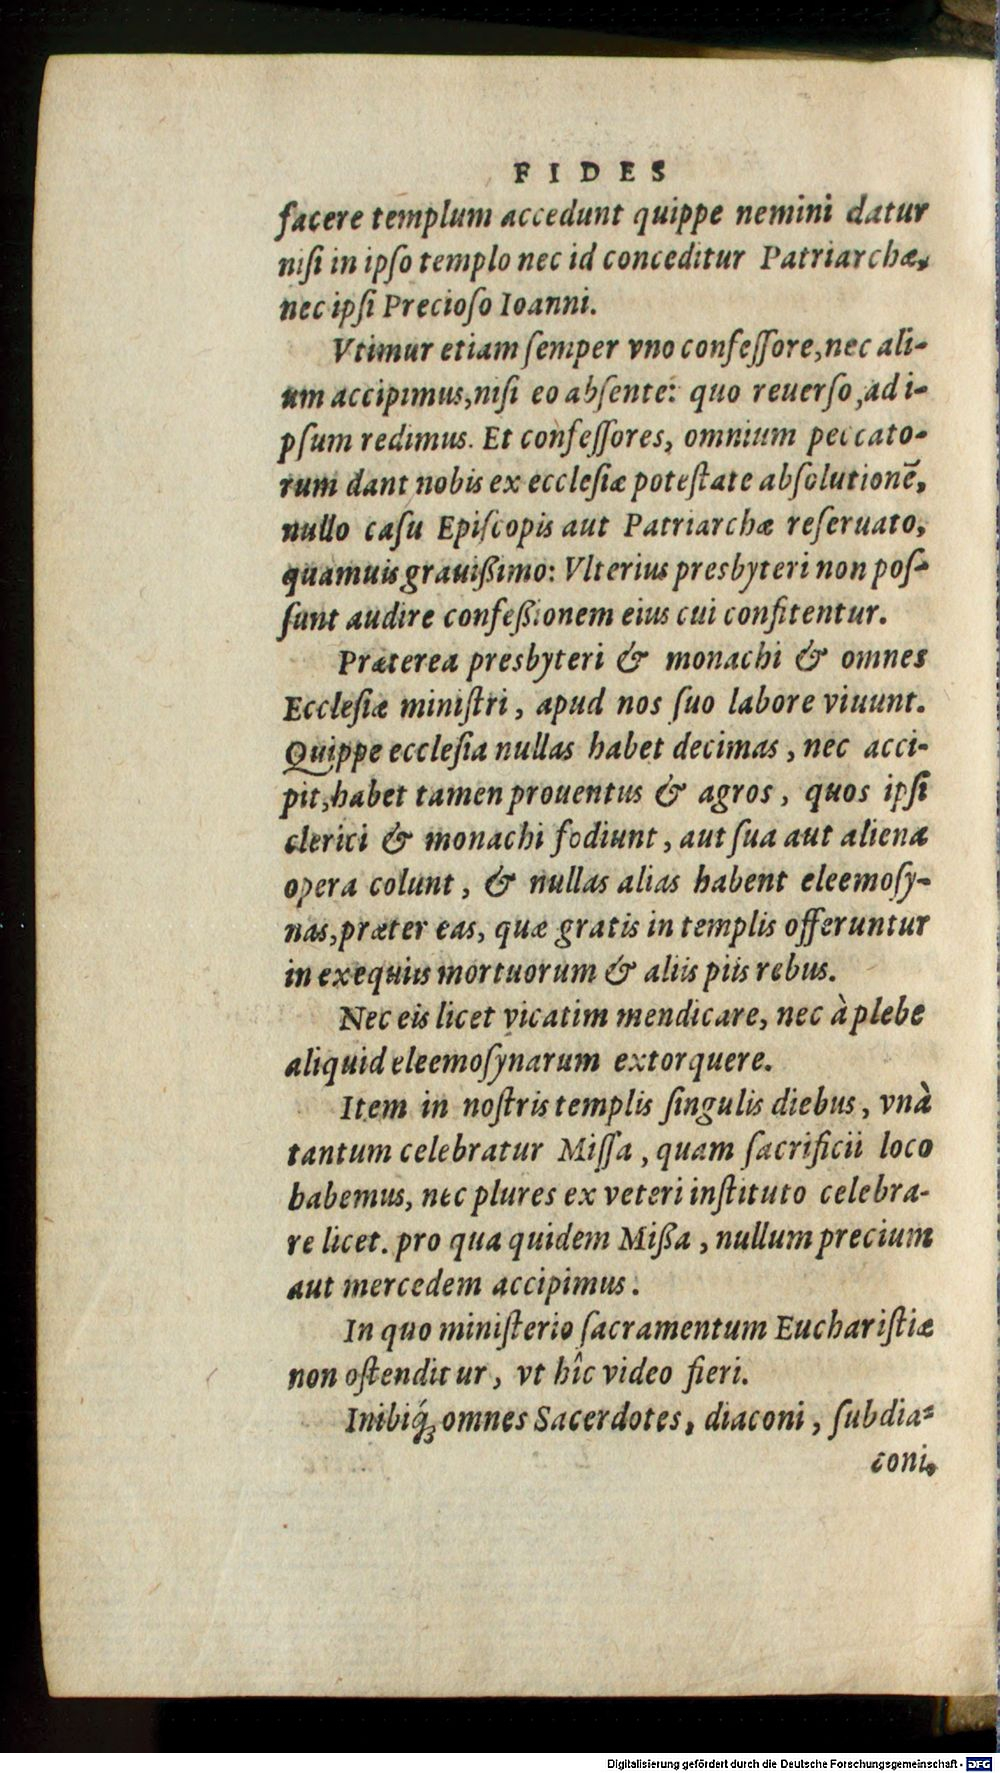 FIDES
facere templum accedunt quippe nemini datur
niſi in ipſo templo nec id conceditur Patriarchæ,
nec ipſi Precioſo Ioanni.
Vtimur etiam ſemper vno confeſſore, nec ali-
um accipimus, niſi eo abſente: quo reuerſo, ad i-
pſum redimus. Et confeſſores, omnium peccato-
rum dant nobis ex eccleſiæ poteſtate abſolutionē,
nullo caſu Epiſcopis aut Patriarchæ reſeruato,
quamuis grauißimo: Vlterius presbyteri non poſ-
ſunt audire confeßionem eius cui confitentur.
Præterea presbyteri & monachi & omnes
Eccleſiæ miniſtri, apud nos ſuo labore viuunt.
Quippe eccleſia nullas habet decimas, nec acci-
pit, habet tamen prouentus & agros, quos ipſi
clerici & monachi fodiunt, aut ſua aut aliena
opera colunt, & nullas alias habent eleemoſy-
nas, præter eas, quæ gratis in templis offeruntur
in exequiis mortuorum & aliis piis rebus.
Nec eis licet vicatim mendicare, nec à plebe
aliquid eleemoſynarum extorquere.
Item in noſtris templis ſingulis diebus, vnà
tantum celebratur Miſſa, quam ſacrificii loco
habemus, nec plures ex veteri inſtituto celebra-
re licet. pro qua quidem Mißa, nullum precium
aut mercedem accipimus.
In quo miniſterio ſacramentum Euchariſtiæ
non oſtenditur, vt hîc video fieri.
Inibiq́ꝫ omnes Sacerdotes, diaconi, ſubdia-
coni,
Digitalisierung gefördert durch die Deutsche Forschungsgemeinschaft - DFG